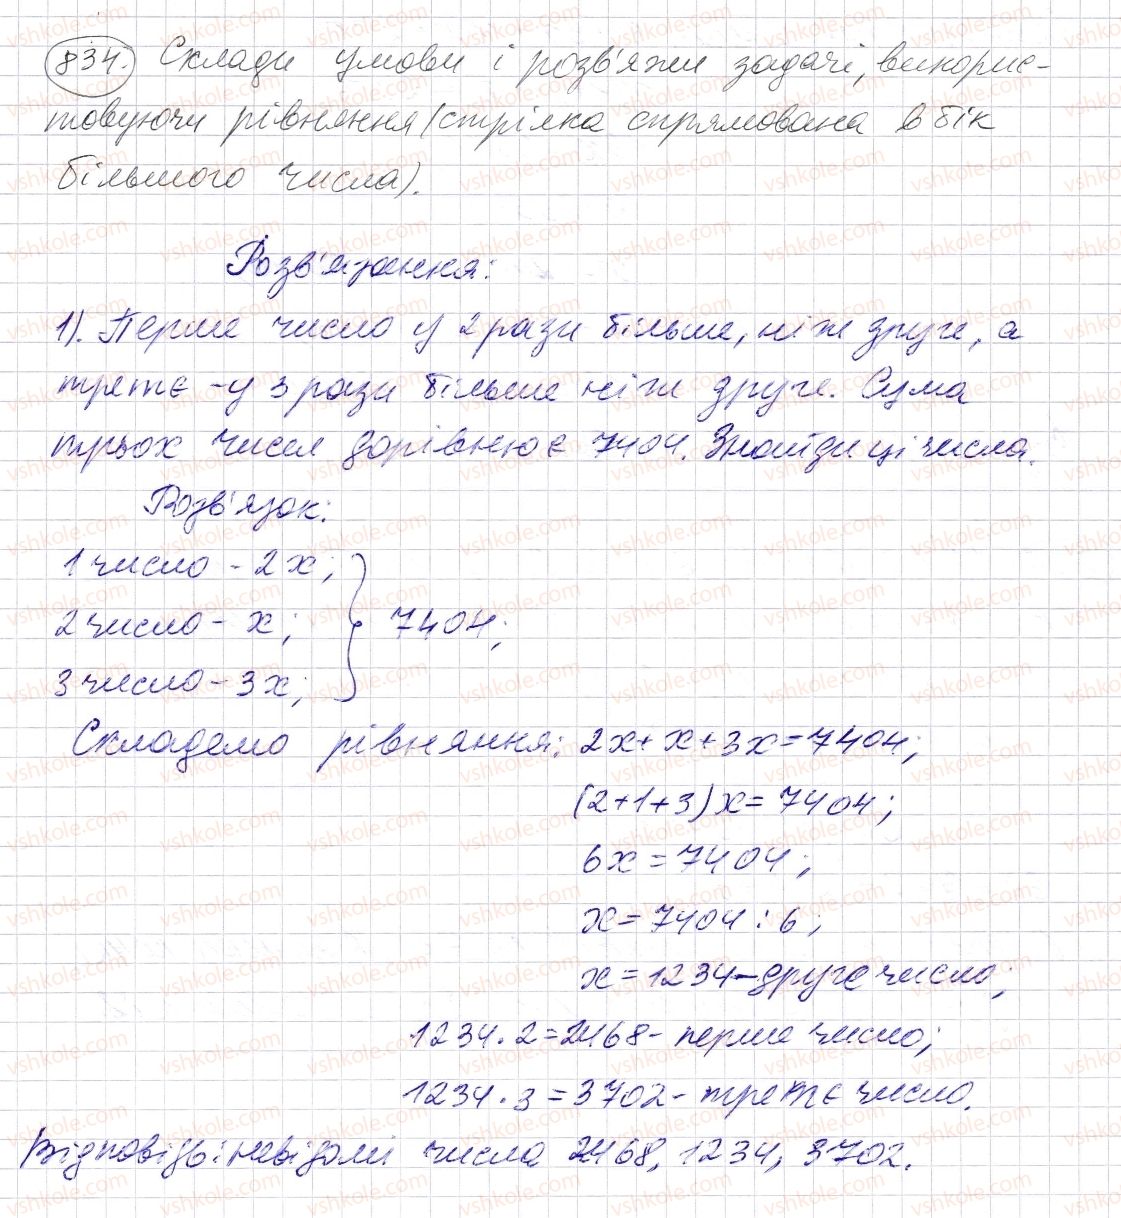 834. Склади умови і розв'яжи задачі, викорис-
товуючи рівняння (стрілка спрямована в бік
більшого числа).
Розв'язання:
1). Перше число у 2 рази більше, ніж друге, а
третє - у 3 рази більше ніж друге. Сума
трьох чисел дорівнює 7404. Знайди ці числа.
Розв'язок:
1 число - 2x;
2 число - x;
7404;
3 число - 3x;
Складемо рівняння: 2x+x+3x=7404;
(2+1+3)x=7404;
6x=7404;
x=7404:6;
x=1234-друге число;
1234·2=2468-перше число;
1234·3=3702-третє число.
Відповідь: невідомі числа 2468, 1234, 3702.